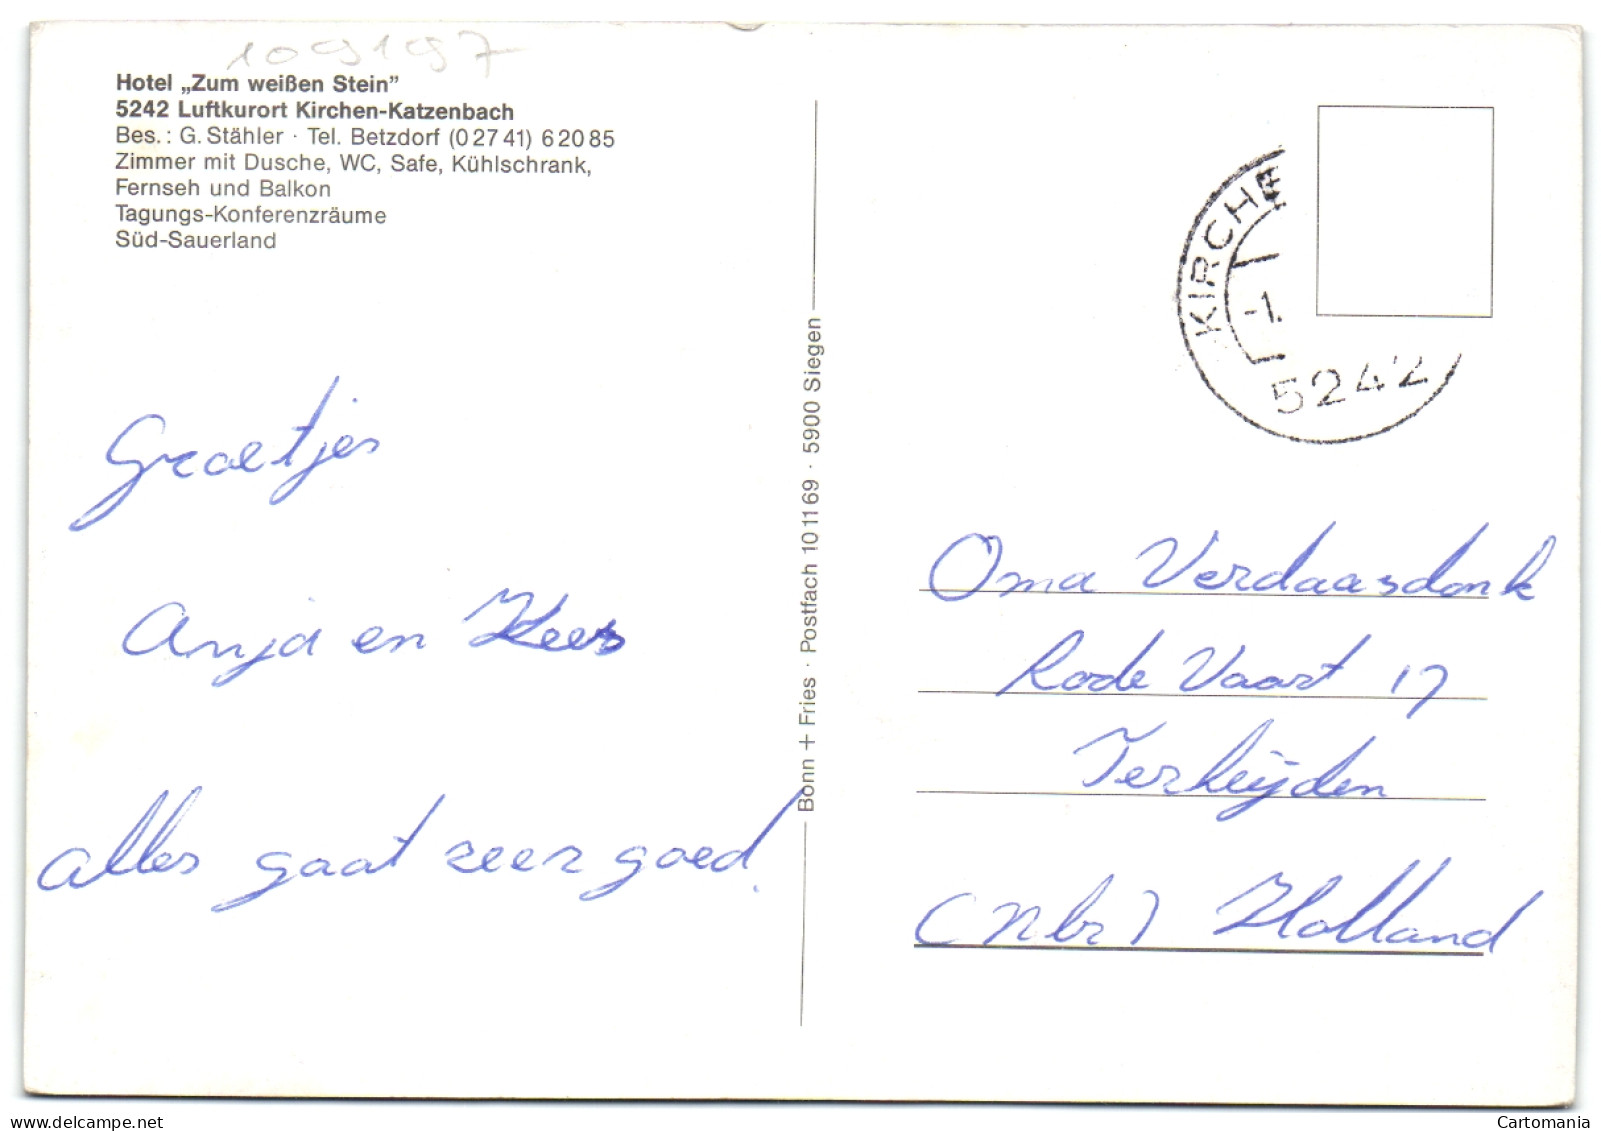 109197
Hotel „Zum weißen Stein”
5242 Luftkurort Kirchen-Katzenbach
Bes.: G. Stähler · Tel. Betzdorf (0 27 41) 6 20 85
Zimmer mit Dusche, WC, Safe, Kühlschrank,
Fernseh und Balkon
Tagungs-Konferenzräume
Süd-Sauerland
Groetjes
Anja en Kees
alles gaat zeer goed.
Bonn + Fries · Postfach 10 11 69 · 5900 Siegen
KIRCHE
-1.
5242
Oma Verdaasdonk
Rode Vaart 17
Terheijden
(Nbr) Holland
delcampe.net
Cartomania